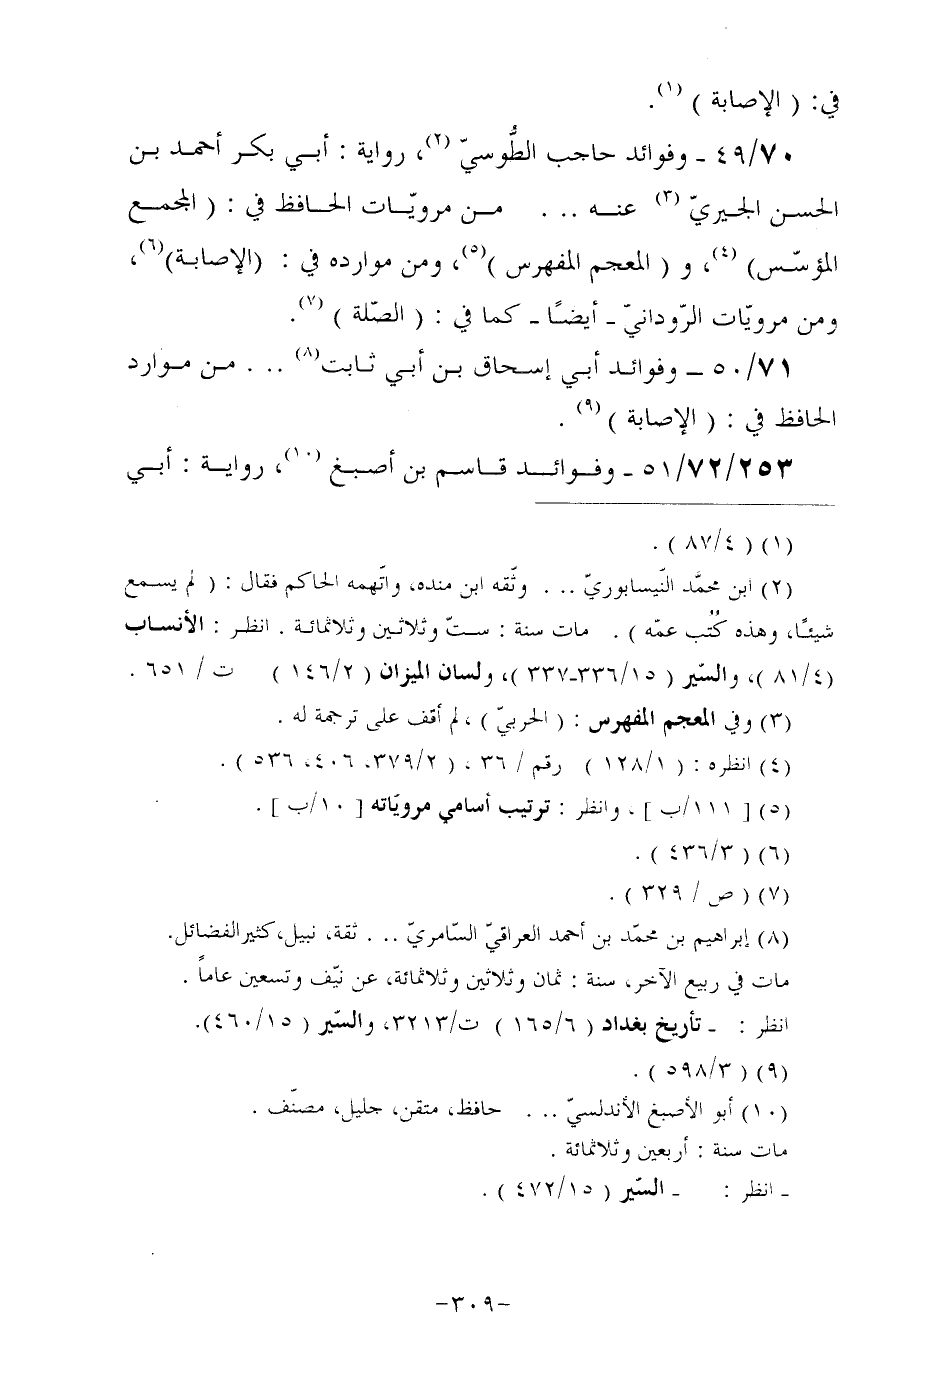 في: ( الإصابة ) (١).
٤٩/٧٠ ـ وفوائد حاجب الطُّوسيّ (٢)، رواية : أبـي بكر أحمـد بـن
الحسن الحيريّ (٣) عنـه ... مـن مرويّـات الحـافظ في : ( المجمـع
المؤسّس) (٤)، و ( المعجم المفهرس )(٥)، ومن موارده في : (الإصابـة)(٦)،
ومن مرويّات الرّودانيّ ـ أيضًـا ـ كما في : ( الصّلة ) (٧).
٥٠/٧١ ـ وفوائـد أبـي إسـحاق بـن أبـي ثـابت(٨) ... مـن مـوارد
الحافظ في : ( الإصابة ) (٩) .
٥١/٧٢/٢٥٣ ـ وفـوائــد قـاسـم بن أصبـغ (١٠)، روايـة : أبـي
(١) ( ٨٧/٤ ) .
(٢) ابن محمَّد النّيسابوريّ ... وثّقه ابن منده، واتّهمه الحاكم فقال : ( لم يسمـع
شيئًـا، وهذه كُتُب عمّه ) . مات سنة : سـتّ وثلاثـين وثلاثمائـة . انظـر : الأنساب
(٨١/٤ )، والسِّير ( ٣٣٦/١٥-٣٣٧ )، ولسان الميزان ( ١٤٦/٢ ) ت / ٦٥١ .
(٣) وفي المعجم المفهرس : ( الحربيّ ) ، لم أقف على ترجمة له .
(٤) انظره : ( ١٢٨/١ ) رقم / ٣٦ ، ( ٣٧٩/٢، ٤٠٦، ٥٣٦ ) .
(٥) [ ١١١/ب ] ، وانظر : ترتيب أسامي مرويّاته [ ١٠/ب ] .
(٦) ( ٤٣٦/٣ ) .
(٧) ( ص / ٣٢٩ ) .
(٨) إبراهيم بن محمّد بن أحمد العراقيّ السّامريّ ... ثقة، نبيل، كثير الفضائل.
مات في ربيع الآخر، سنة : ثمان وثلاثين وثلاثمائة، عن نيّف وتسعين عاماً .
انظر : ـ تأريخ بغداد ( ١٦٥/٦ ) ت/٣٢١٣، والسِّير ( ٤٦٠/١٥).
(٩) ( ٥٩٨/٣ ) .
(١٠) أبو الأصبغ الأندلسيّ ... حافظ، متقن، جليل، مصنّف .
مات سنة : أربعين وثلاثمائة .
ـ انظر : ـ السِّير ( ٤٧٢/١٥ ) .
-٣٠٩-